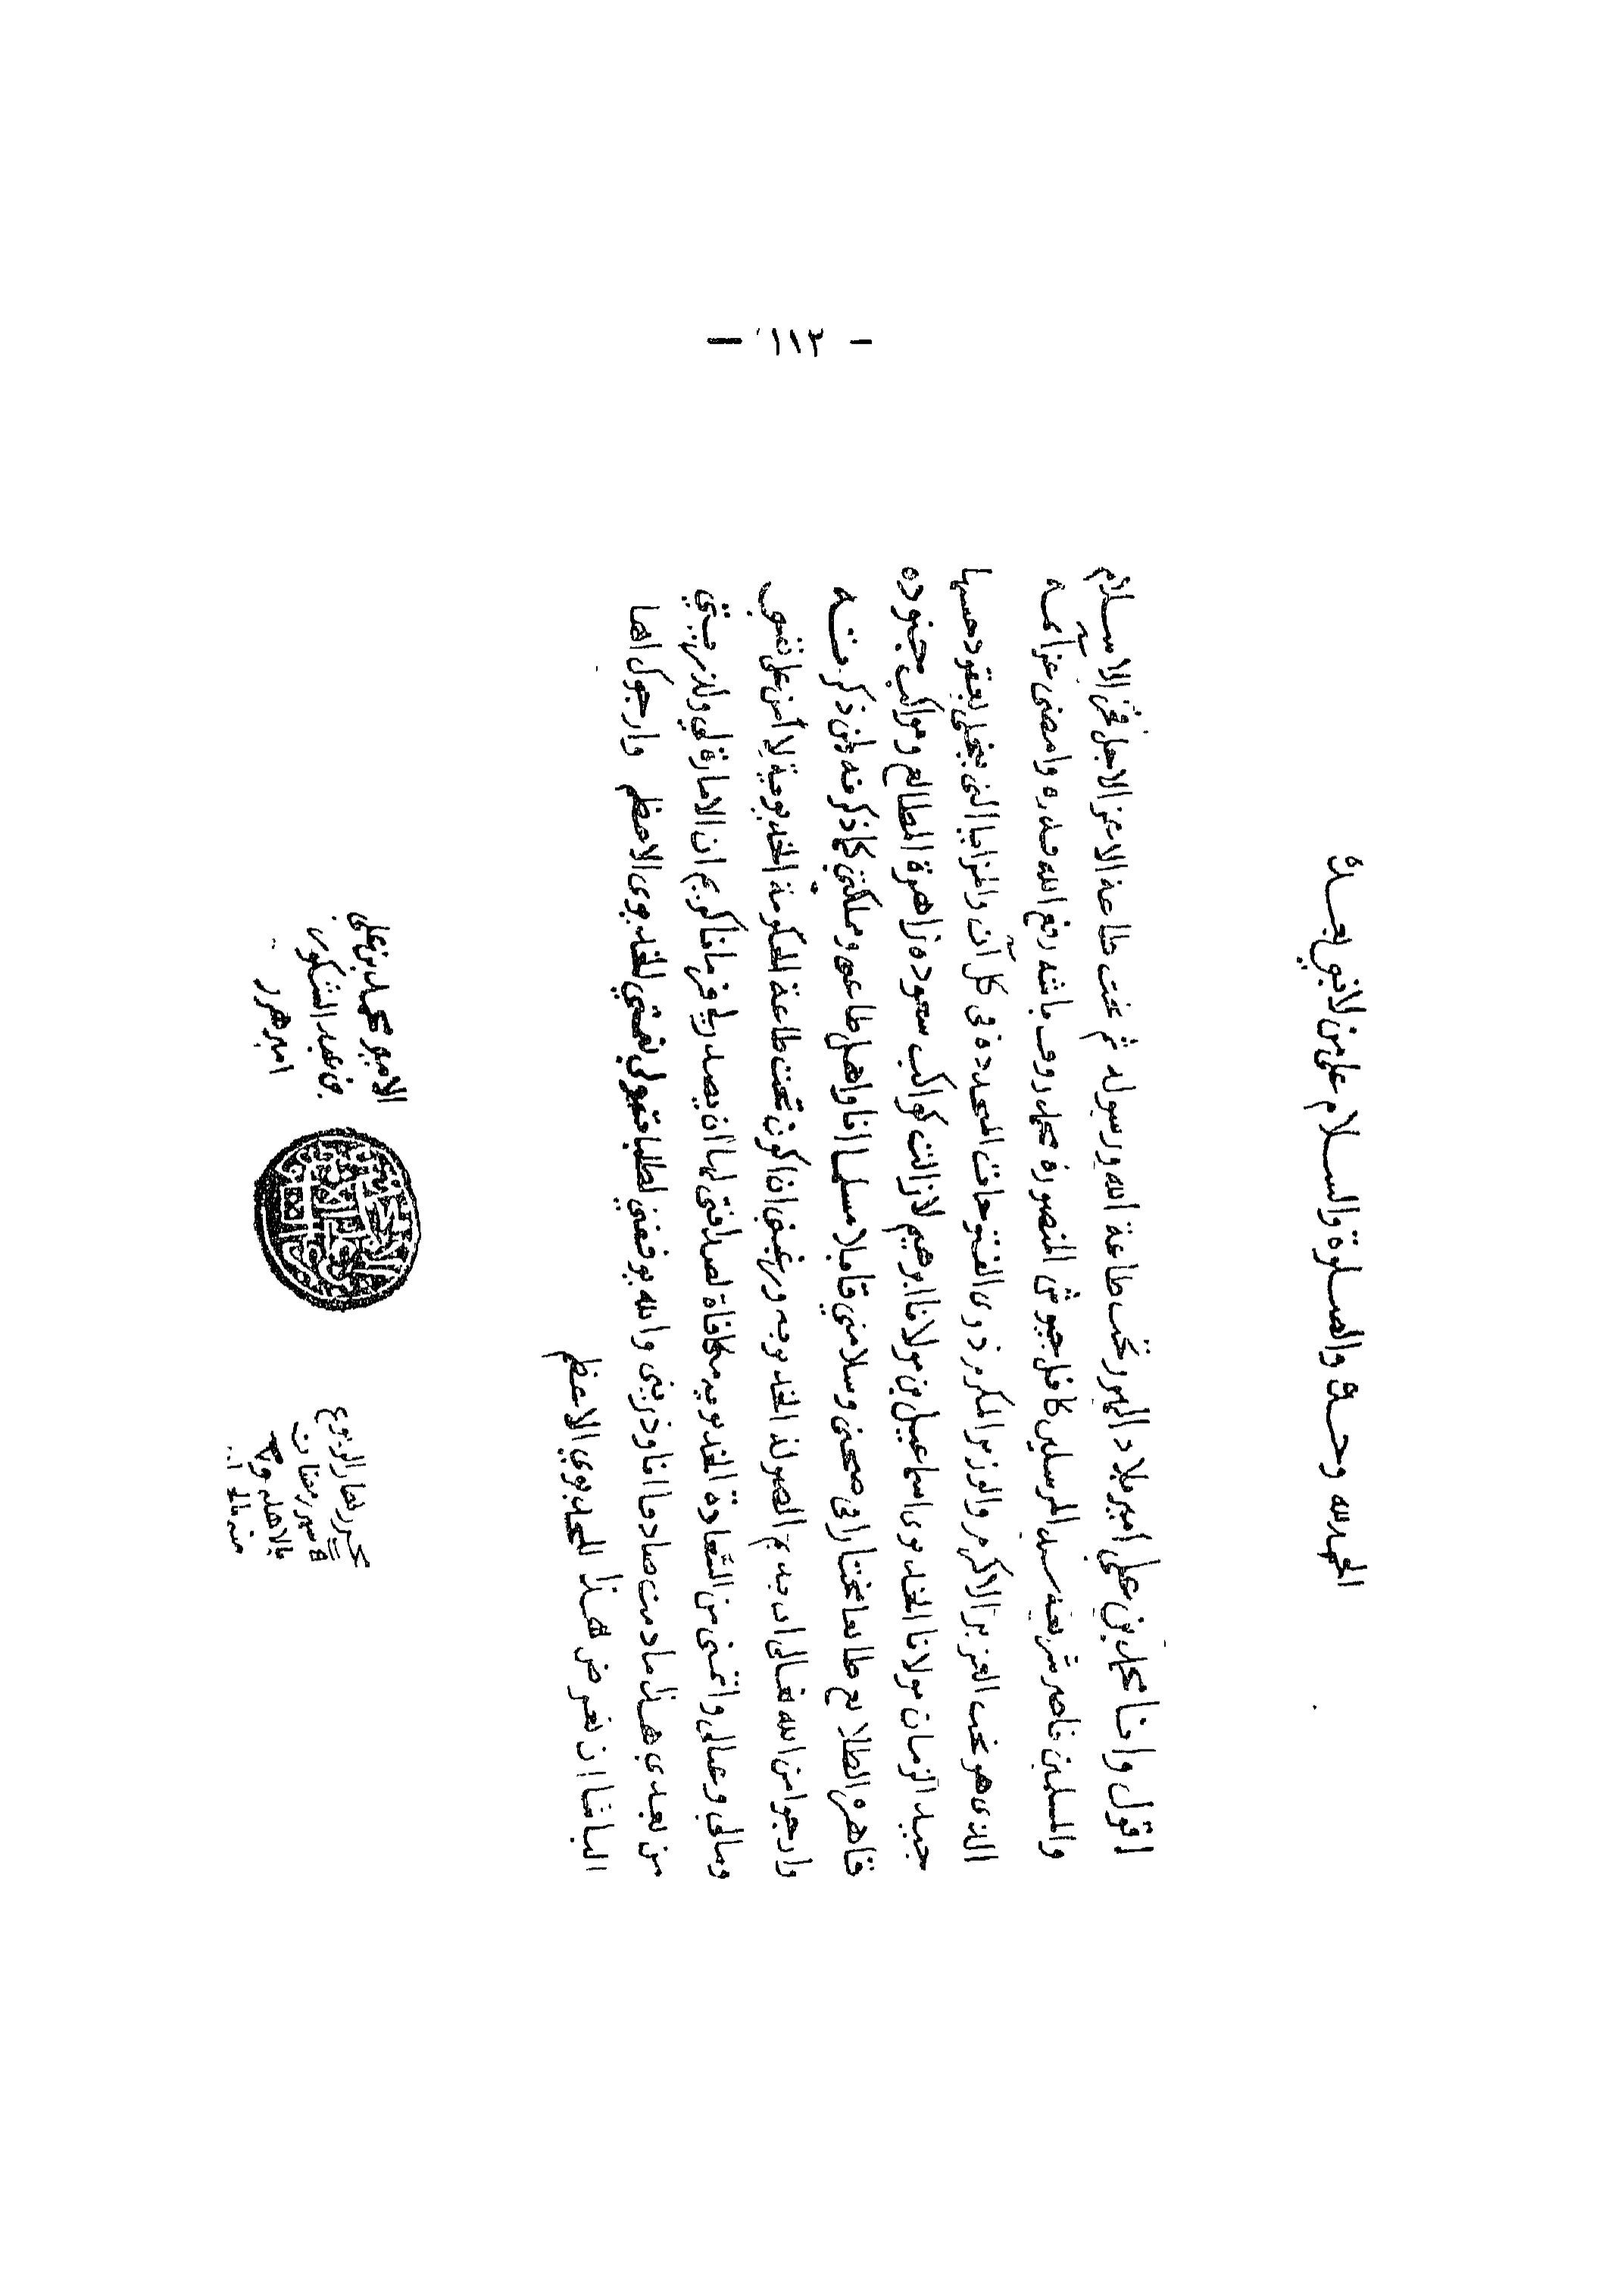 - ١١٣ -
الحمد لله وحده والصلوة والسلام على من لا نبي بعده
اقول وانا محمد بن علي امير بلاد الهرر تحت طاعة الله ورسوله ثم تحت طاعة الاعز الاجل فخر الاسلام
والمسلمين ناصر شريعة سيد المرسلين كافل جيوش المنصورة محمد روف باشه رفع الله قدره وامضى عزآئمه
الذى هو تحت العزيز الاكرم والوزير المكرم ذوى الفتوحات المجددة فى كل آن والمزايا التى يتحلى بعقودها
جيد الزمان مولانا الخديوى اسماعيل بن مولانا ابراهيم لازالت كواكب سعوده زاهرة المطالع ومواكب جنوده
قاهرة الطلايع طايعا مختارا فى صحتى وسلامتي قابلا مسلما انا واهل طاعتى ومملكتى كما ذكرته لمن ذكرته
وارجوا من الله تعالى ان يديم الصولة الخديويه ورغبتى ان اكون تحت طاعة الحكومة الخديوية لآمن على نفسي
ومالى وعيالى واتمنى من السعادة الخديويه مكافاة لصداقتى لها ان يصدر لي فرمانا كريم ان الامارة لي ولذريتي
من بعدى هذا مادمت صادقا انا وذريتى والله يوفقني لطلبا حتى ولي نعمتي الخديوى الاعظم وارجوك ايها
الباشا ان تعرض هذا للخديوي الاعظم
الامير محمد بن علي
بن عبد الشكور
امير هرر
تحرير نهار الربوع
شهر رمضان